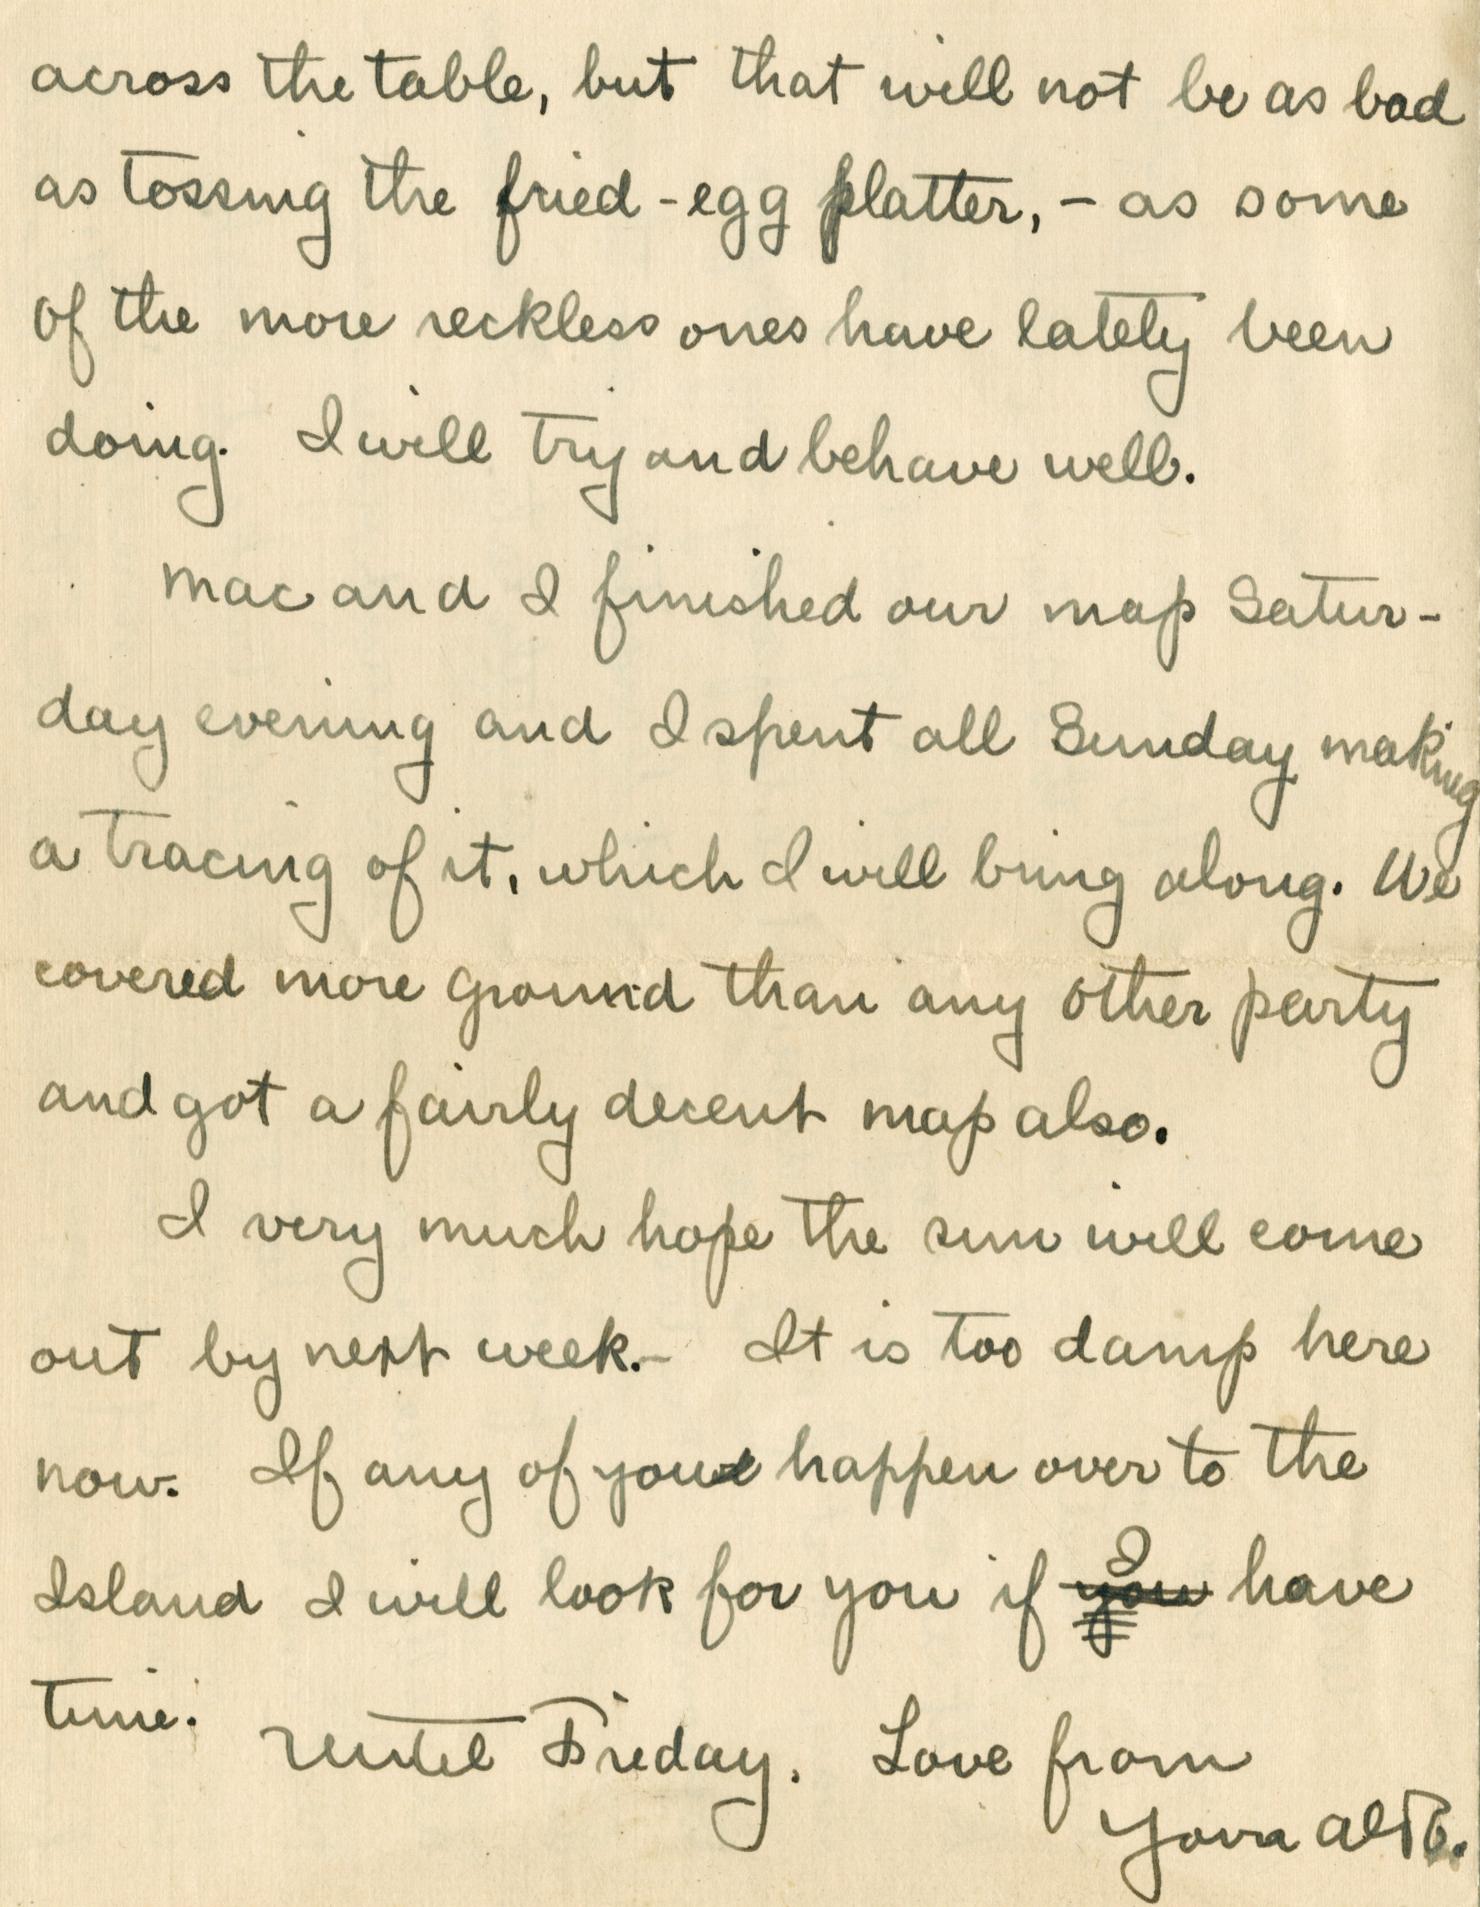 across the table, but that will not be as bad
as tossing the fried-egg platter, - as some
of the more reckless ones have lately been
doing. I will try and behave well.
Mac and I finished our map Satur-
day evening and I spent all Sunday making
a tracing of it, which I will bring along. We
covered more ground than any other party
and got a fairly decent map also.
I very much hope the sun will come
out by next week.- It is too damp here
now. If any of you happen over to the
Island I will look for you if I have
time.
Until Friday. Love from